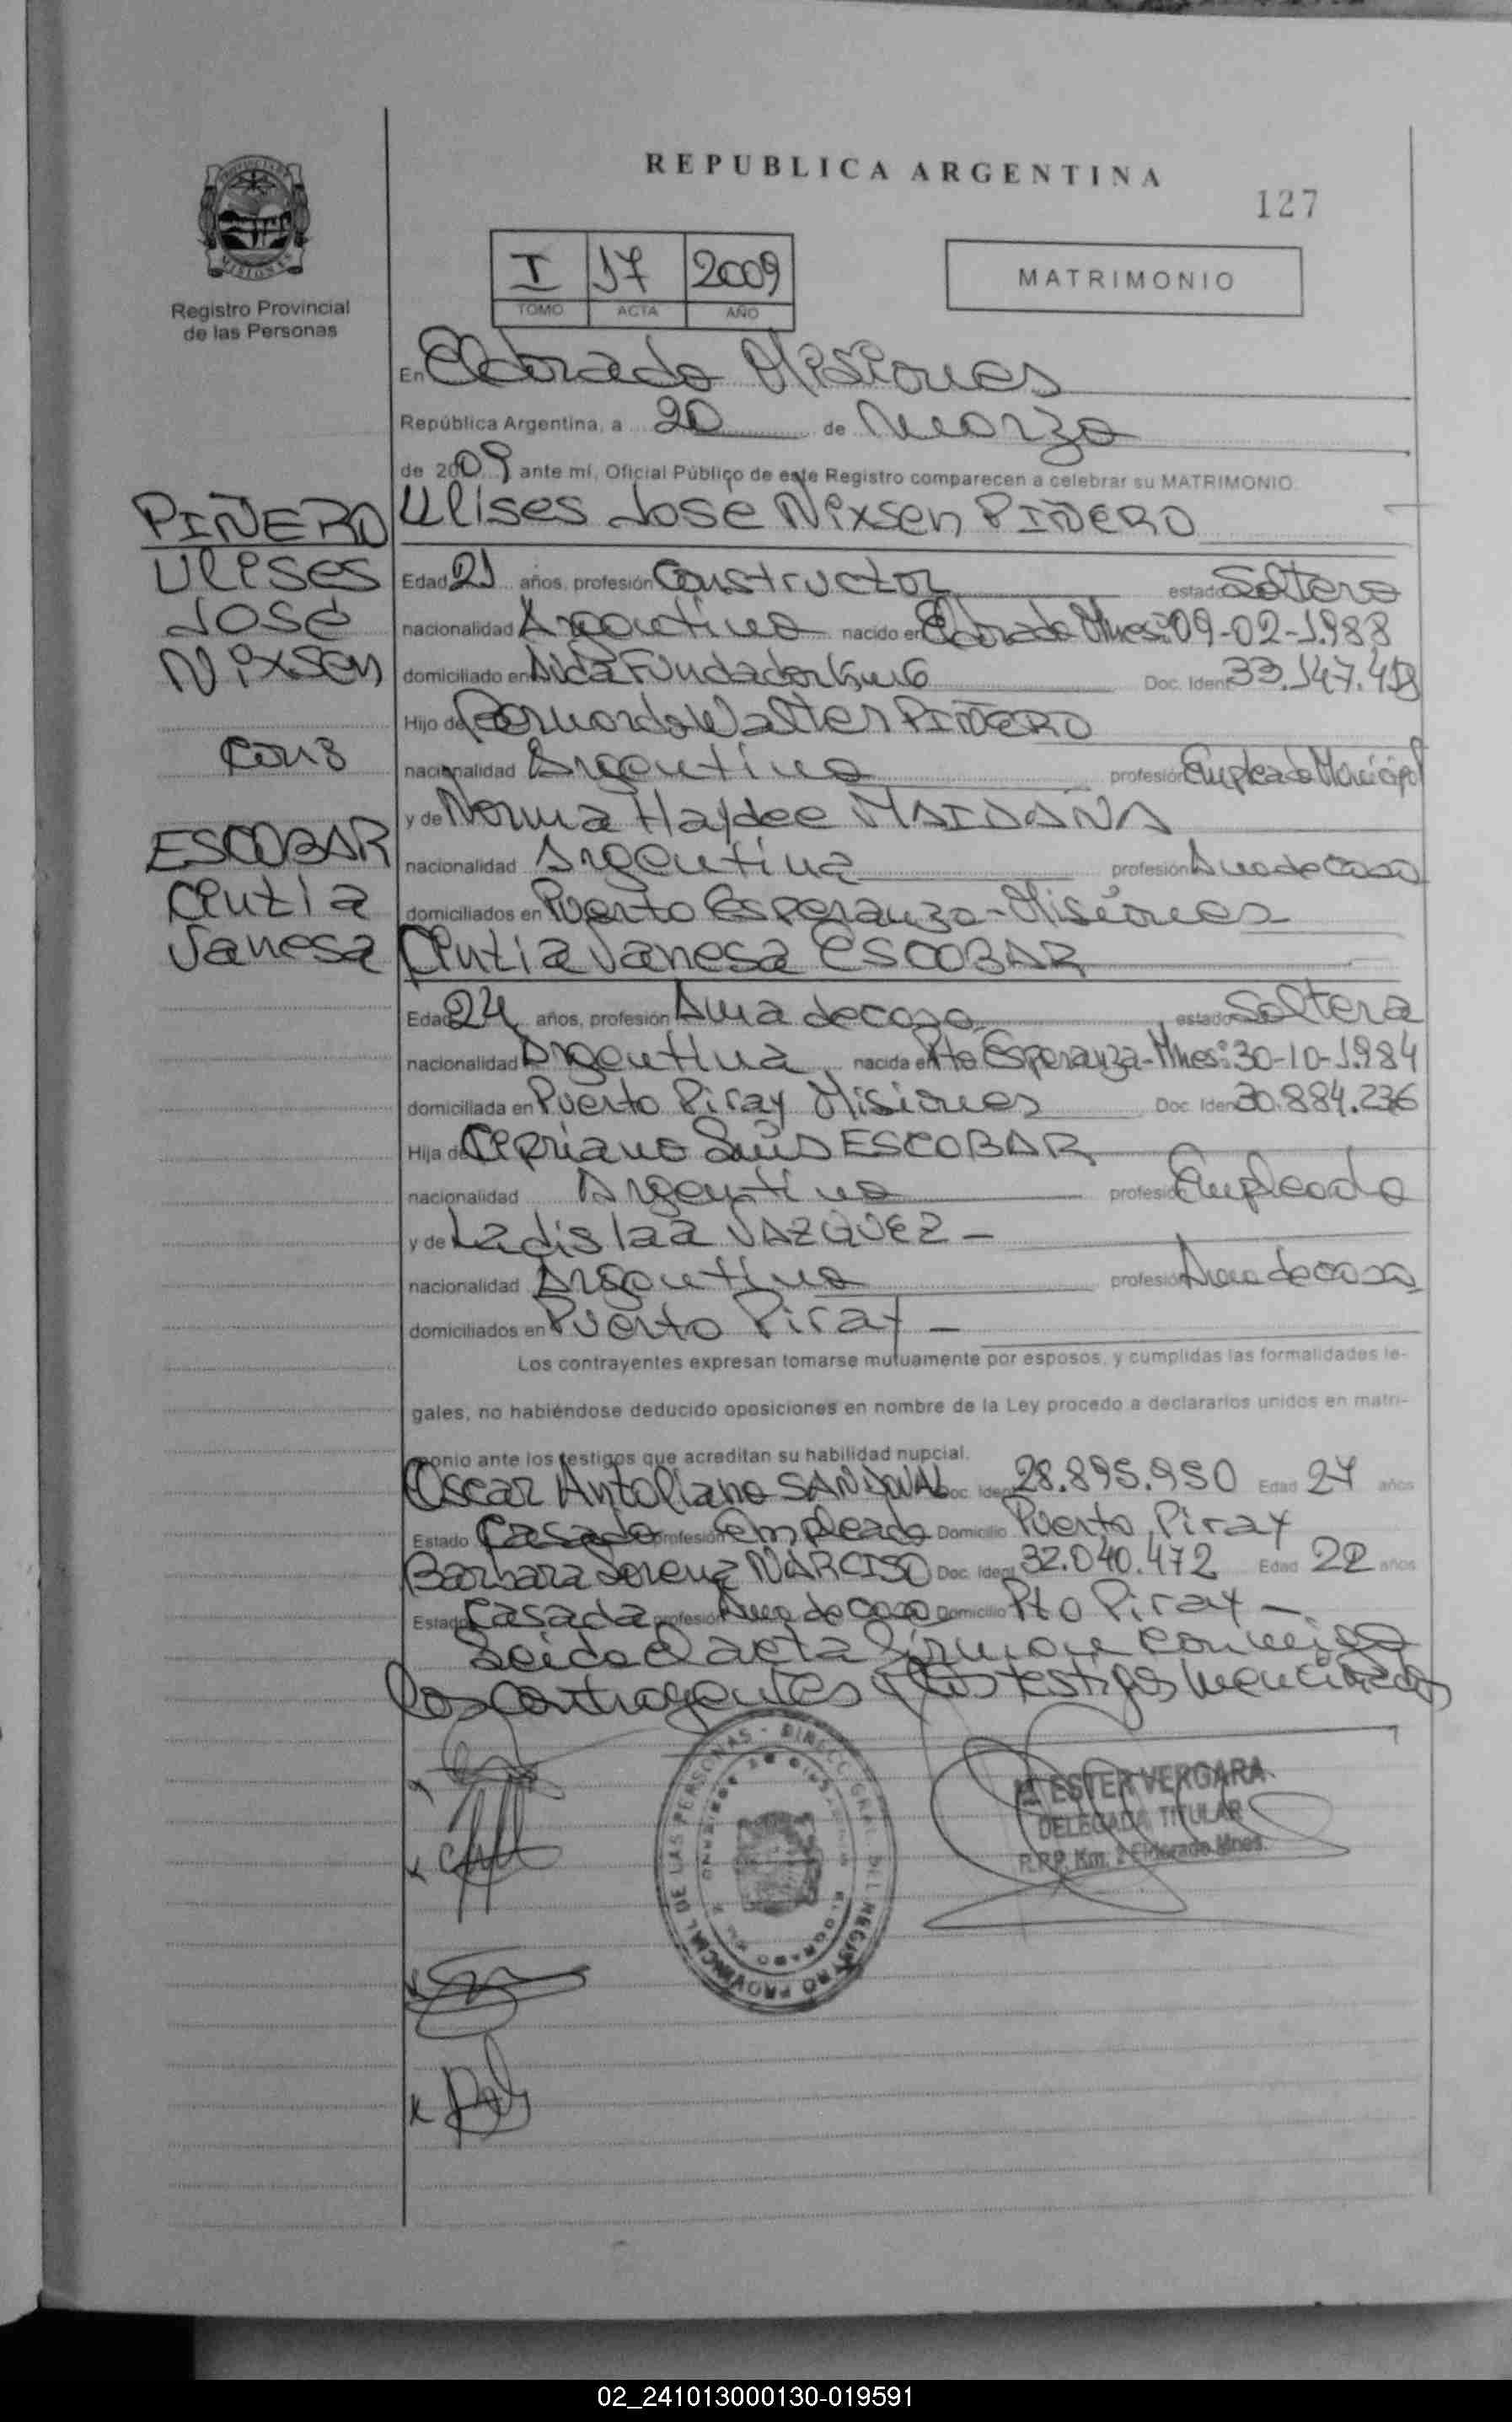 REPUBLICA ARGENTINA
127
I 17 2009
TOMO ACTA AÑO
MATRIMONIO
Registro Provincial
de las Personas
En Eldorado Misiones
República Argentina, a 20 de Marzo
de 2009 ante mí, Oficial Público de este Registro comparecen a celebrar su MATRIMONIO
PIÑERO
Ulises
José
Nixsen
con
ESCOBAR
Cintia
Vanesa
Ulises Jose Nixsen PIÑERO
Edad 21 años, profesión Constructor estado Soltero
nacionalidad Argentino nacido en Eldorado Mnes: 09-02-1.988
domiciliado en Avda Fundador Km 6 Doc. Ident 33.147.418
Hijo de Bernardo Walter PIÑERO
nacionalidad Argentino profesión Empleado Municipal
y de Norma Haydee MAIDANA
nacionalidad Argentina profesión Ama de casa
domiciliados en Puerto Esperanza - Misiones
Cintia Vanesa ESCOBAR
Edad 24 años, profesión Ama de casa estado Soltera
nacionalidad Argentina nacida en Pto Esperanza - Mnes: 30-10-1.984
domiciliada en Puerto Piray Misiones Doc. Ident 30.884.236
Hija de Cipriano Luis ESCOBAR
nacionalidad Argentino profesión Empleado
y de Ladislaa VAZQUEZ -
nacionalidad Argentina profesión Ama de casa
domiciliados en Puerto Piray -
Los contrayentes expresan tomarse mutuamente por esposos, y cumplidas las formalidades le-
gales, no habiéndose deducido oposiciones en nombre de la Ley procedo a declararlos unidos en matri-
monio ante los testigos que acreditan su habilidad nupcial.
Oscar Antoliano SANDOVAL Doc. Ident 28.895.950 Edad 27 años
Estado Casado profesión Empleado Domicilio Puerto Piray
Barbara Lorena NARCISO Doc. Ident 32.040.472 Edad 22 años
Estado Casada profesión Ama de casa Domicilio Pto Piray -
Leida el acta firman conmigo
los contrayentes y los testigos mencionados
Mª ESTER VERGARA
DELEGADA TITULAR
R.P.P. Km. 2 Eldorado Mnes.
02_241013000130-019591